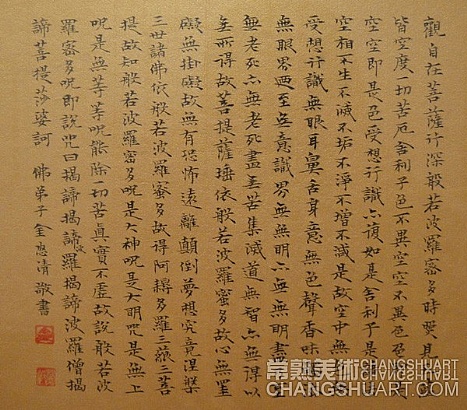 觀自在菩薩行深般若波羅密多時照見
皆空度一切苦厄舍利子色不異空空不異色色
空空即是色受想行識亦復如是舍利子是
空相不生不滅不垢不淨不增不減是故空中無
受想行識無眼耳鼻舌身意無色聲香味
無眼界乃至無意識界無無明亦無無明盡
無老死亦無老死盡無苦集滅道無智亦無得以
無所得故菩提薩埵依般若波羅蜜多故心無罣
礙無掛礙故無有恐怖遠離顛倒夢想究竟涅槃
三世諸佛依般若波羅蜜多故得阿耨多羅三藐三菩
提故知般若波羅密多咒是大神咒是大明咒是無上
咒是無等等咒能除一切苦真實不虛故說般若波
羅密多咒即說咒曰揭諦揭諦羅揭諦波羅僧揭
諦菩提莎婆訶 佛弟子金清敬書
常熟美術
CHANGSHUART
CHANGSHUART.COM